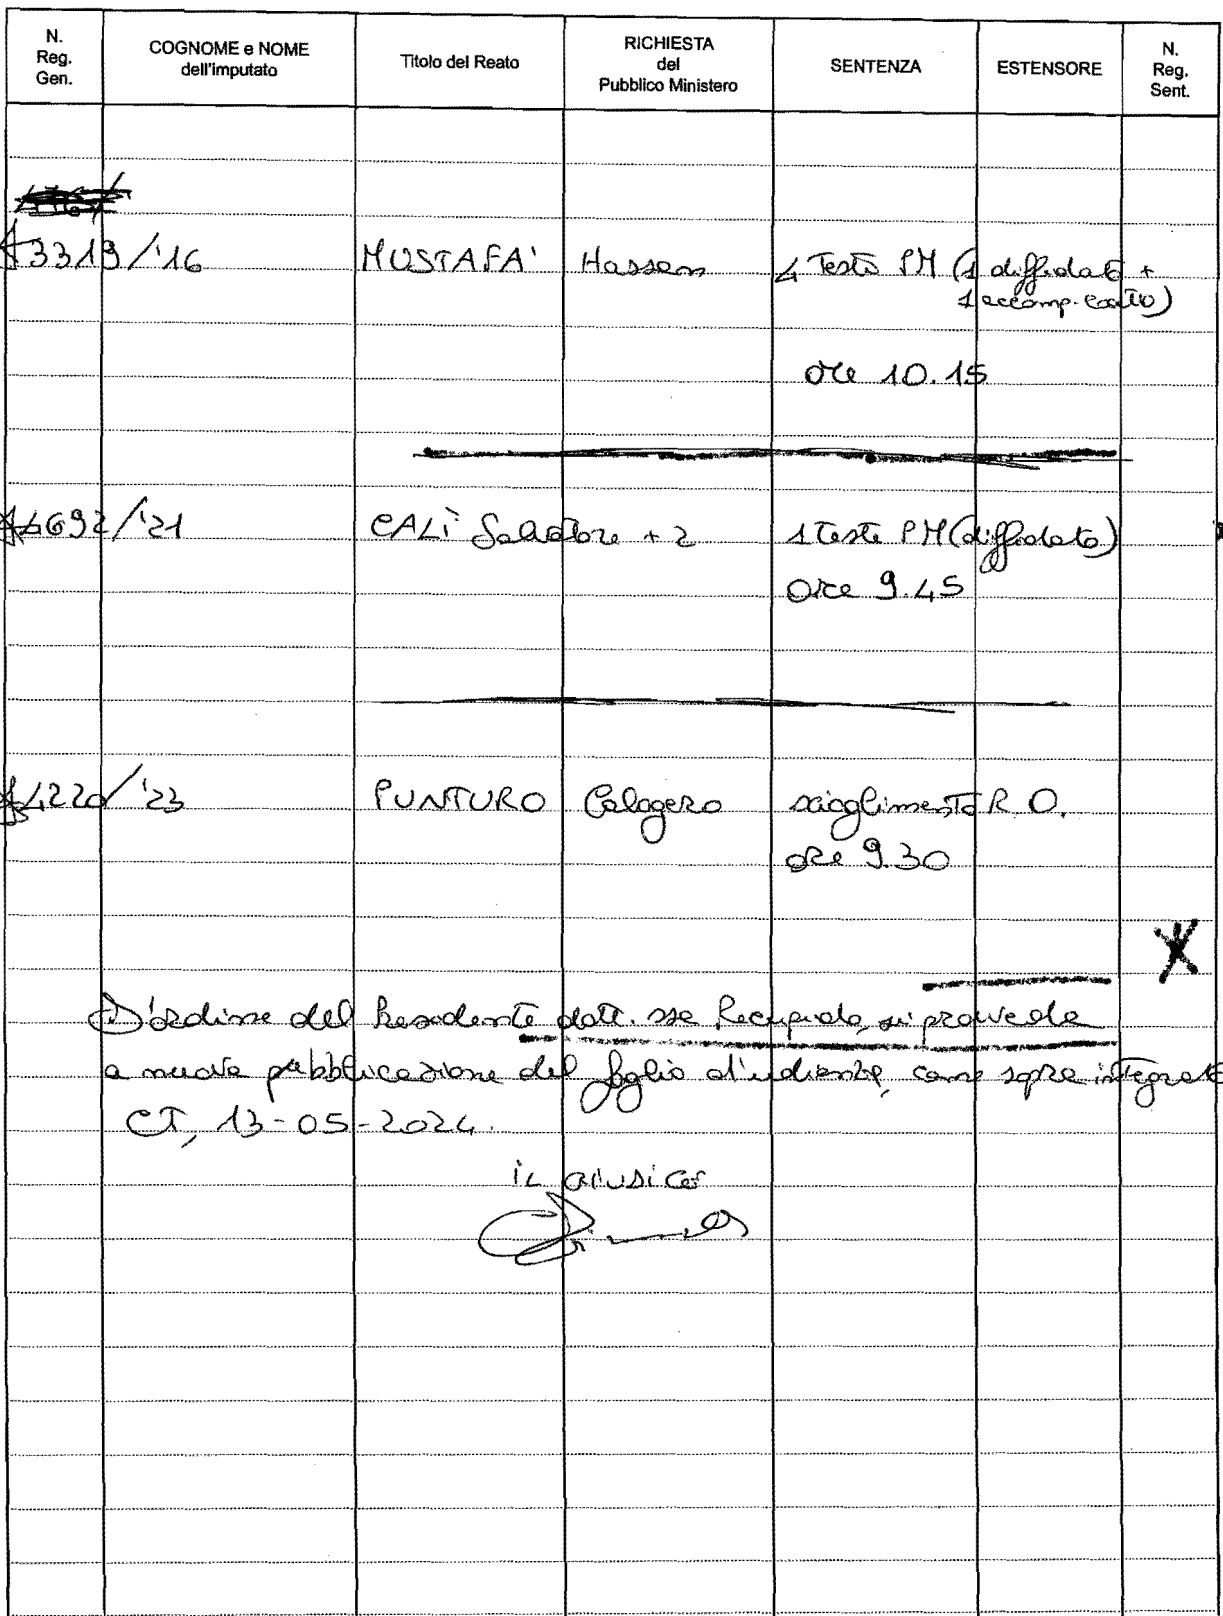 N. Reg. Gen. COGNOME e NOME dell'imputato Titolo del Reato RICHIESTA del Pubblico Ministero SENTENZA ESTENSORE N. Reg. Sent.
3319/'16 MUSTAFA' Hassen 4 Testi PM (1 diffidato +
1 accomp. coatto)
ore 10.15
4692/'21 CALÌ Salvatore + 2 1 Teste PM (diffidato)
ore 9.45
4220/'23 PUNTURO Calogero scioglimento R.O.
ore 9.30
D'ordine del Presidente dott.ssa Recupido, si provvede
a nuova pubblicazione del foglio d'udienza, come sopra integrato
CT, 13-05-2024.
il GIUDICE